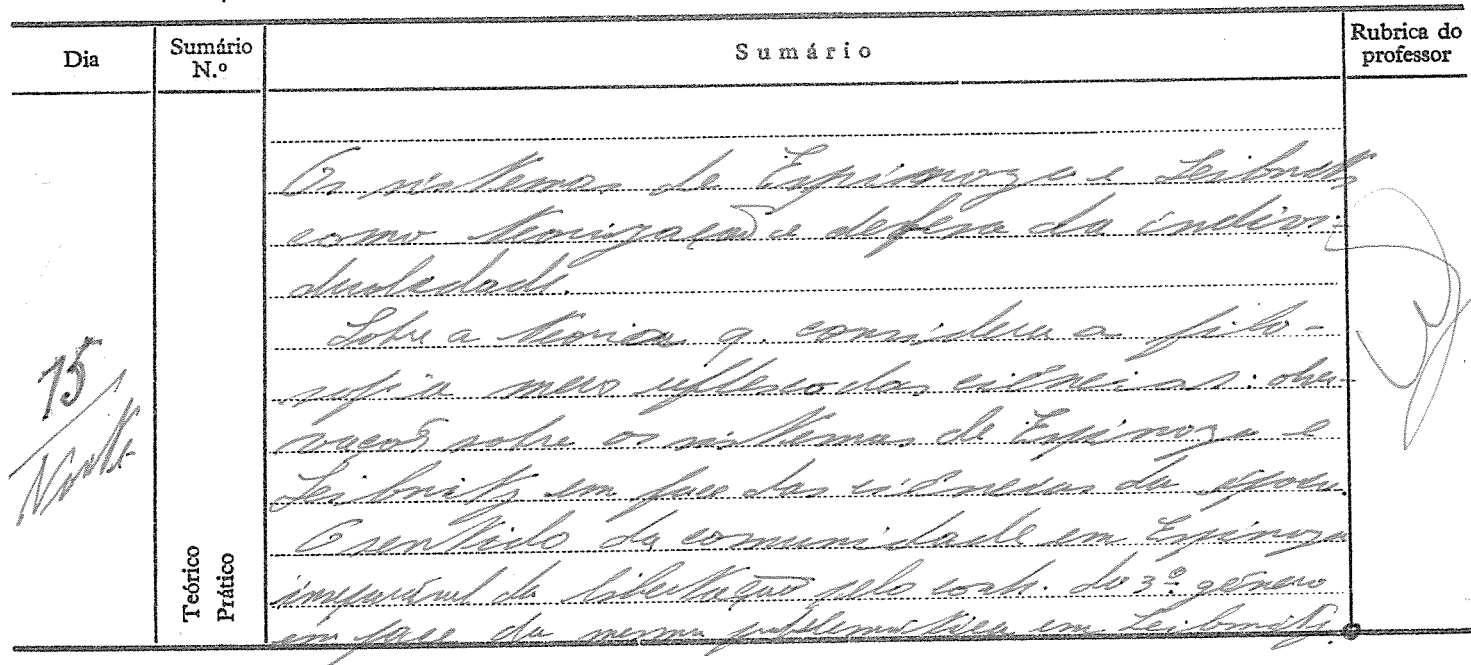 Dia
Sumário N.º
Sumário
Rubrica do professor
Os sistemas de Espinoza e Leibnitz
como teorização e defesa da indivi-
dualidade.
Sobre a teoria q. considera a filo-
sofia mero reflexo das ciências: obser-
vações sobre os sistemas de Espinoza e
Leibnitz em face das ciências da época.
O sentido da comunidade em Espinoza
de libertação pelo conh. do 3º género
em face da mesma problemática em Leibnitz.
15
Teórico
Prático